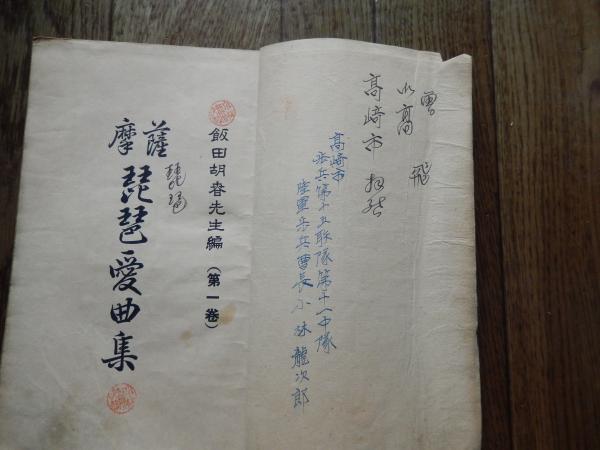 曹 飛
小高
高崎市
高崎市
歩兵第十五聯隊第十一中隊
陸軍歩兵曹長小林龍次郎
飯田胡春先生編（第一巻）
薩摩
琵琶
琵琶愛曲集